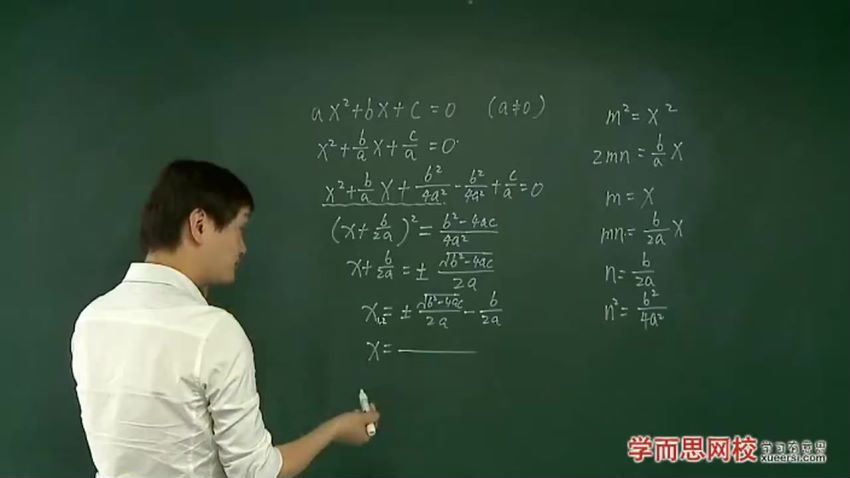 ax²+bx+c=0 (a≠0)
x²+b/a x+c/a=0
x²+b/a x+b²/4a²-b²/4a²+c/a=0
(x+b/2a)²=b²-4ac/4a²
x+b/2a=±√b²-4ac/2a
x₁,₂=±√b²-4ac/2a-b/2a
x=
m²=x²
2mn=b/a x
m=x
mn=b/2a x
n=b/2a
n²=b²/4a²
学而思网校
学习有意思
xueersi.com